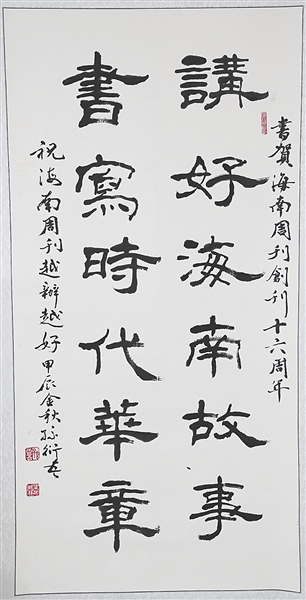 書賀海南周刊創刊十六周年
講好海南故事
書寫時代華章
祝海南周刊越辦越好甲辰金秋孫衍吉